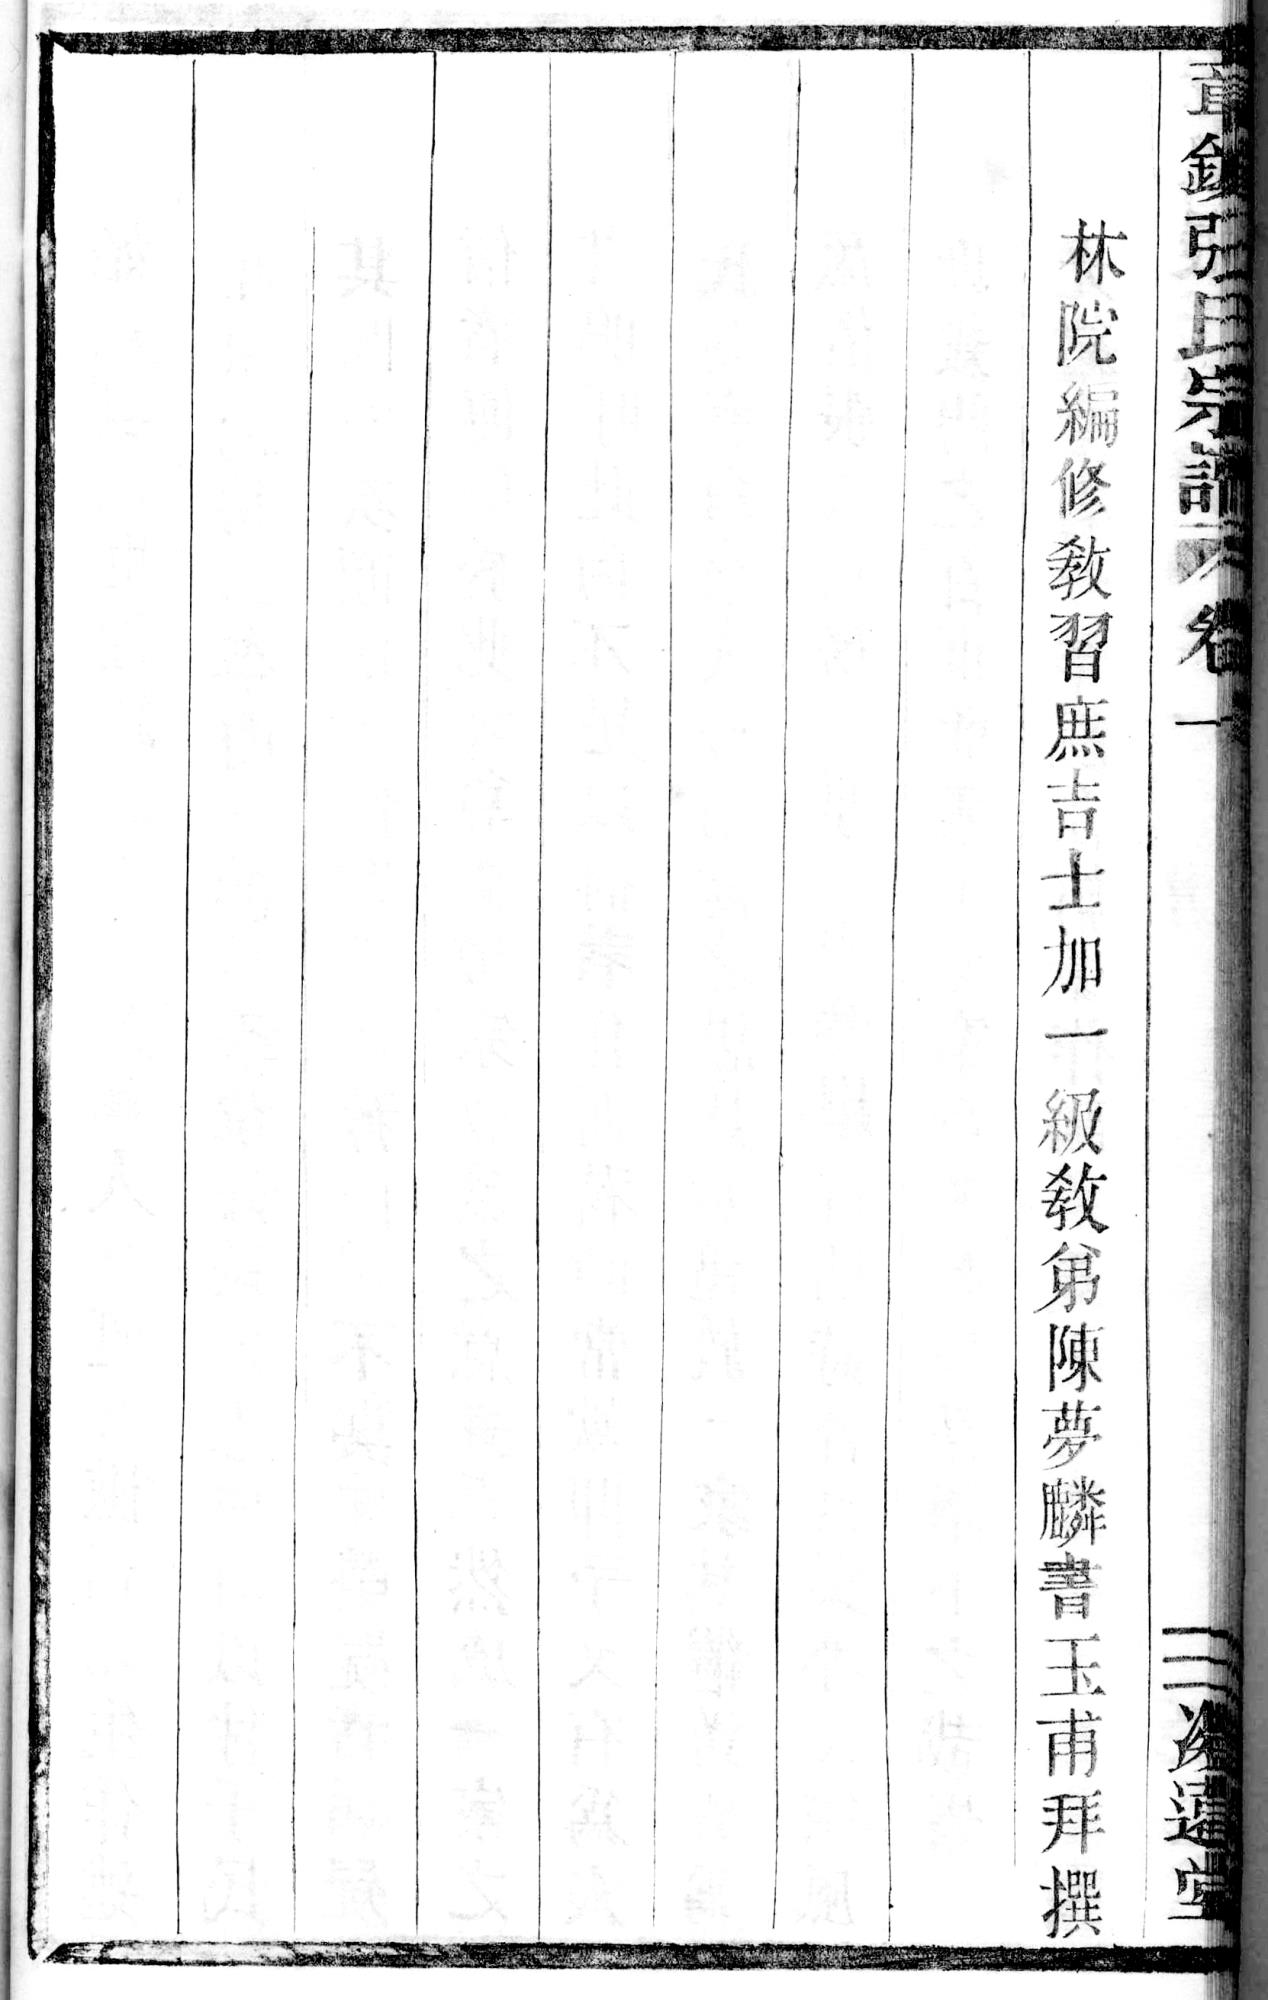 張氏宗譜 卷一
三 追遠堂
林院編修敎習庶吉士加一級敎弟陳夢麟書玉甫拜撰